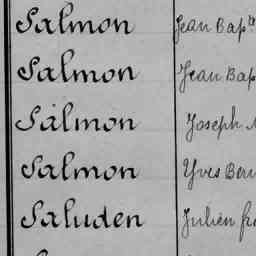 Salmon Jean Bapte
Salmon Jean Bap
Salmon Joseph
Salmon Yves
Saluden Julien